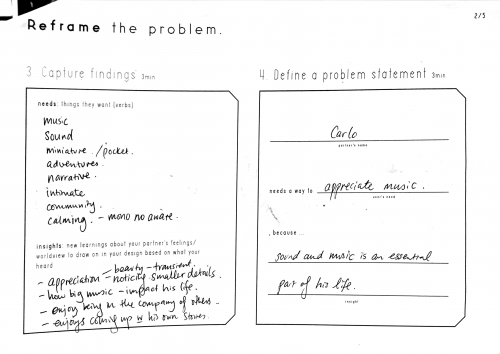 2/5
Reframe the problem.
3. Capture findings 3min
needs: things they want (verbs)
music
Sound
miniature. /pocket.
adventures.
narrative.
intimate
community.
calming. - mono no aware.
insights: new learnings about your partner's feelings/
worldview to draw on in your design based on what your
heard
- appreciation - beauty - transient.
- noticing smaller details.
- how big music - impact his life.
- enjoy being in the company of others.
- enjoys coming up w his own stories.
4. Define a problem statement 3min
Carlo
partner's name
needs a way to appreciate music.
user's need
, because...
sound and music is an essential
part of his life.
insight